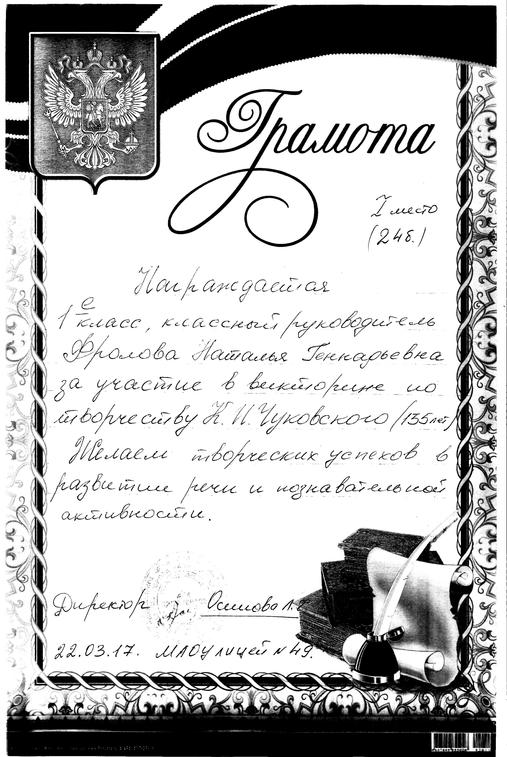 Грамота
I место
(24б.)
Награждается
1е класс, классный руководитель
Фролова Наталья Геннадьевна
за участие в викторине по
творчеству К.И.Чуковского (135лет)
Желаем творческих успехов в
развитии речи и познавательной
активности.
Директор Осипова Л.
22.03.17. МАОУ лицей №49.